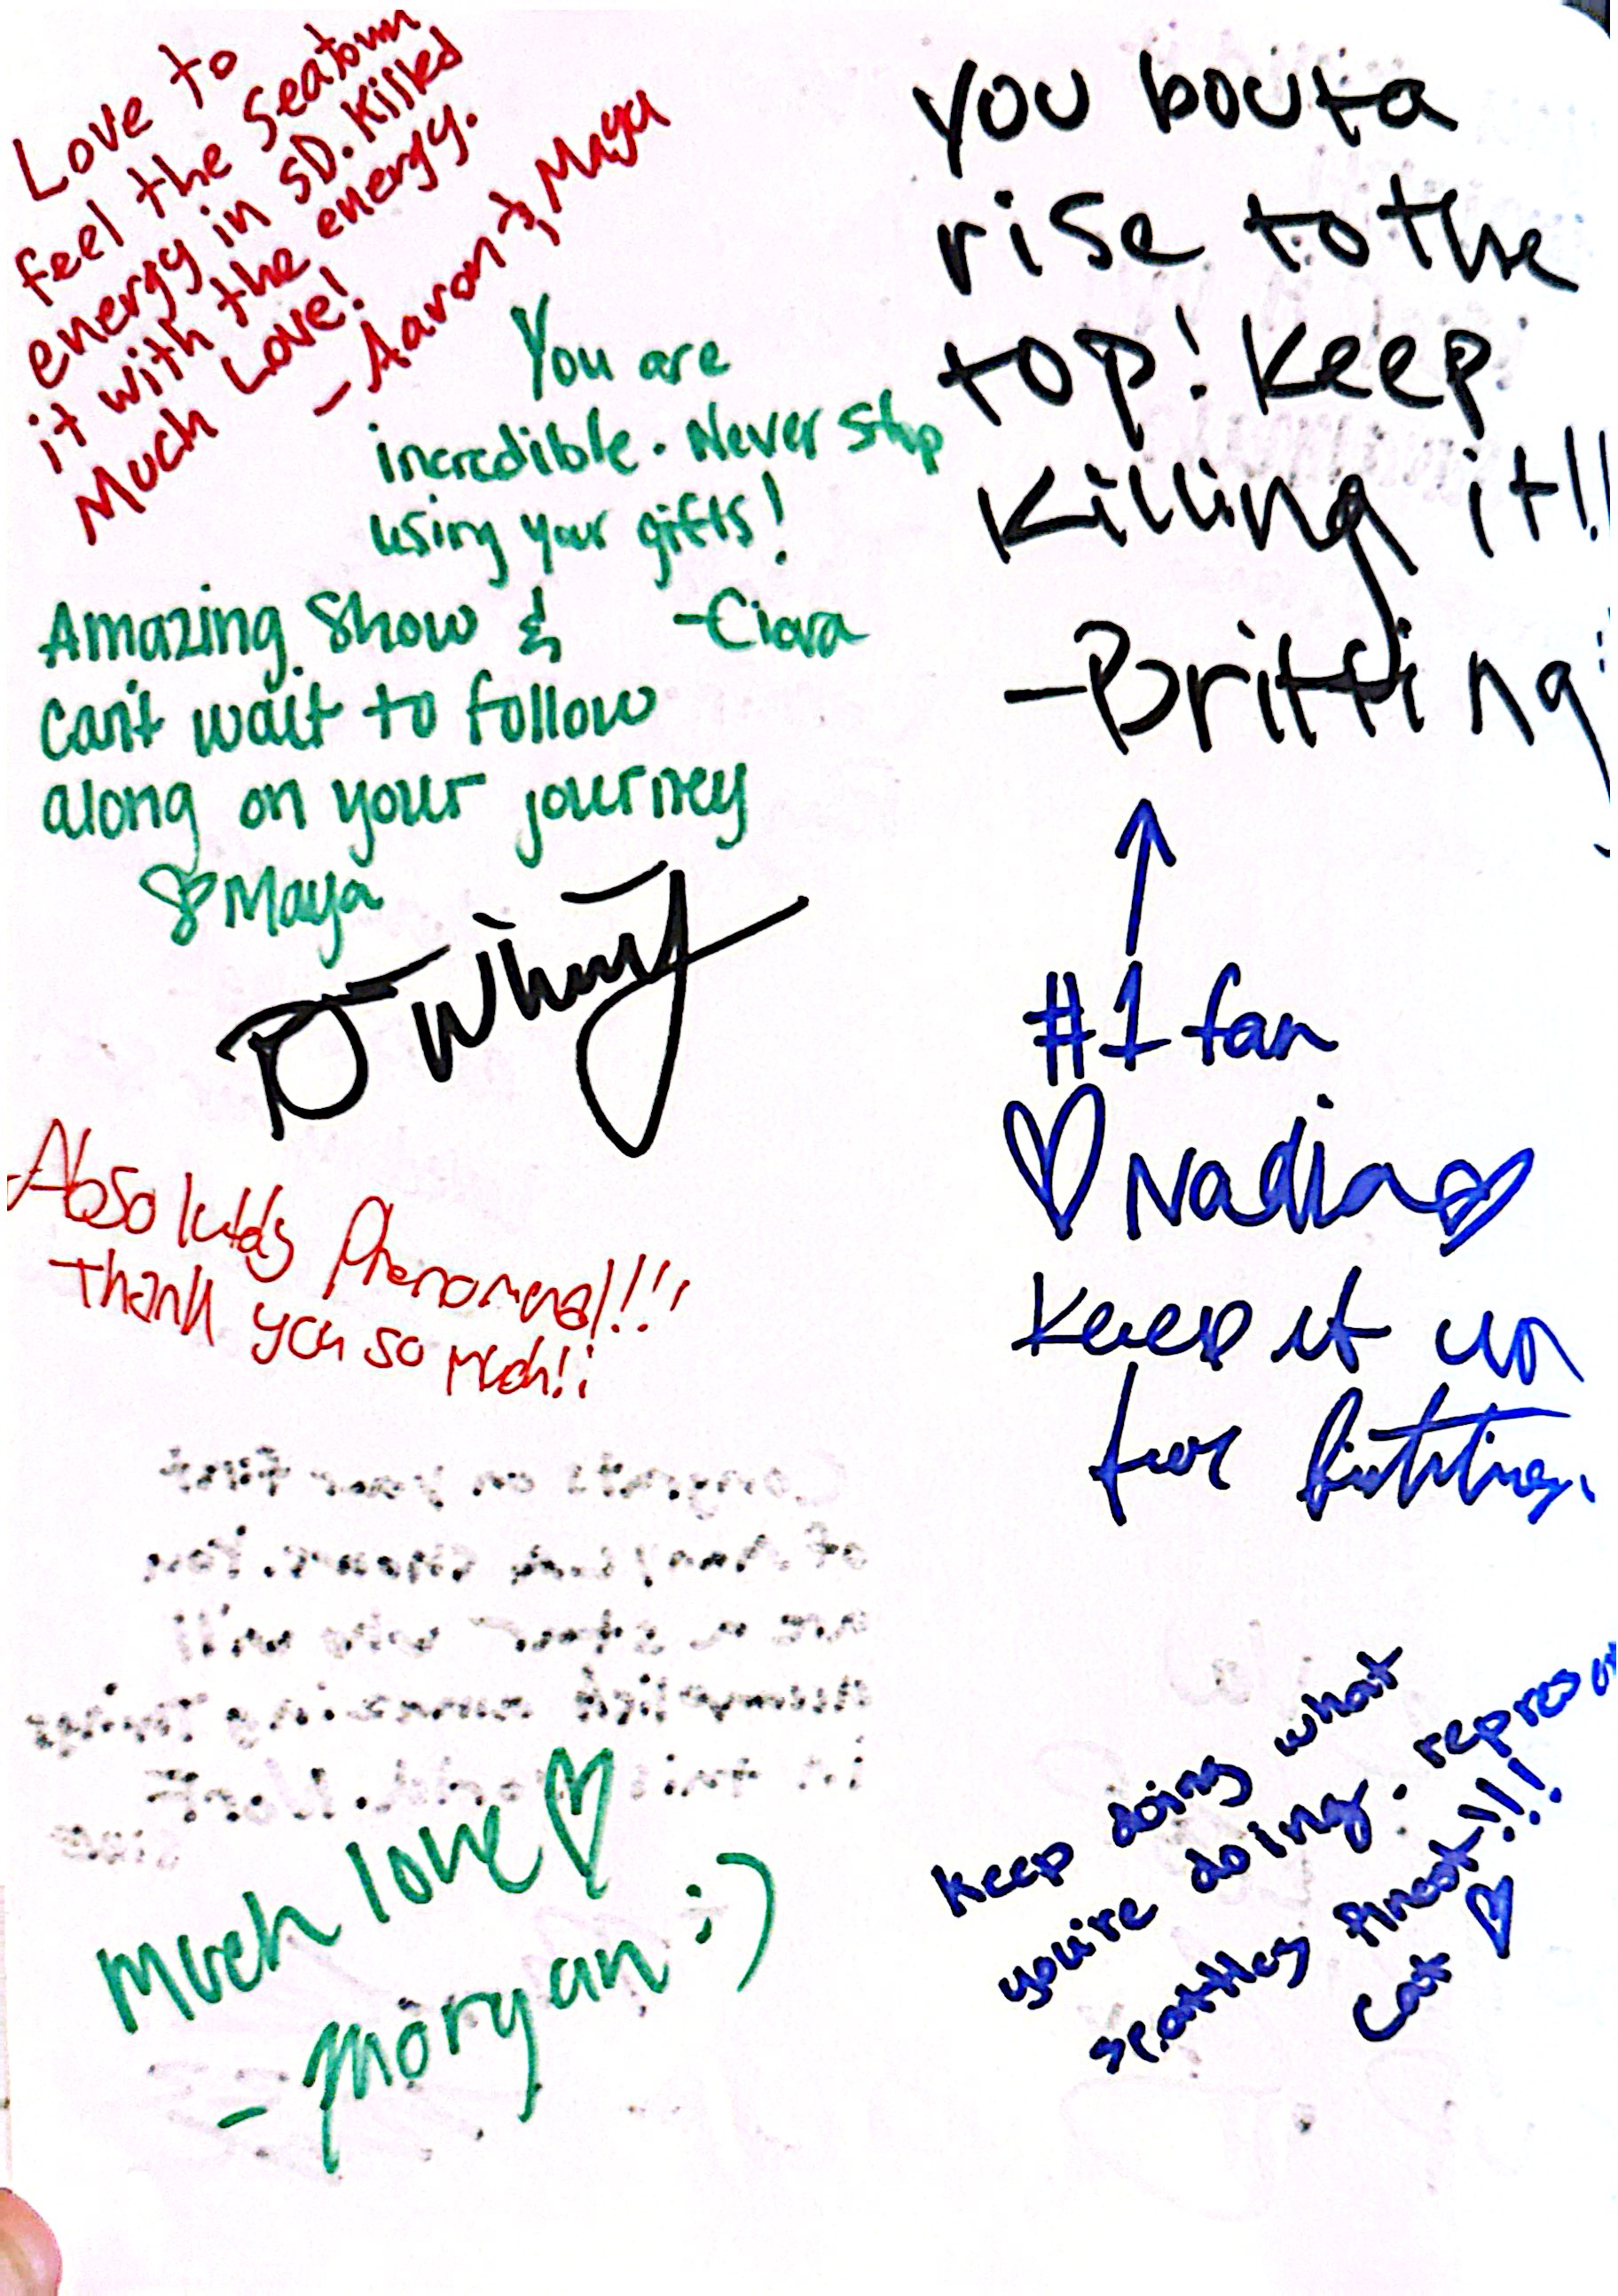 Love to
feel the Seatown
energy in SD. Killed
it with the energy.
Much Love!
- Aaron & Maya
You are
incredible. Never stop
using your gifts!
-Ciara
Amazing Show &
can't wait to follow
along on your journey
♡ Maya
Absolutely Phenomenal!!!
Thank you so much!!
much love ♡
- morgan :)
you bouta
rise to the
top! Keep
Killing it!!
↑
#1 fan
♡ Nadia ♡
Keep it up
for
Keep doing what
you're doing.
seattles finest!!!
Cat ♡